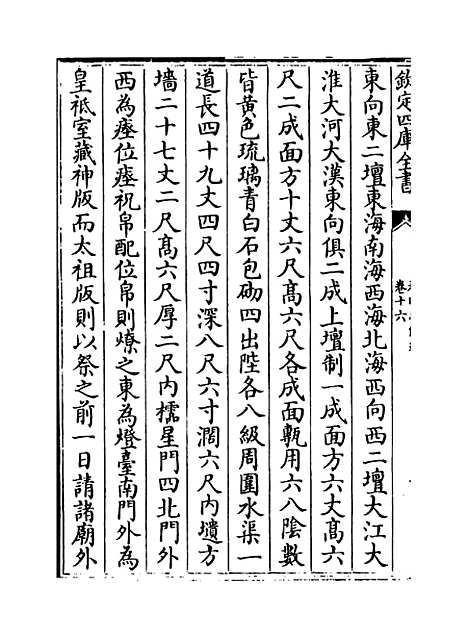 欽定四庫全書
卷十六
東向東二壇東海南海西海北海西向西二壇大江大
淮大河大漢東向俱二成上壇制一成面方六丈高六
尺二成面方十丈六尺高六尺各成面甎用六八陰數
皆黃色琉璃青白石包砌四出陛各八級周圍水渠一
道長四十九丈四尺四寸深八尺六寸濶六尺內壝方
墻二十七丈二尺高六尺厚二尺內櫺星門四北門外
西為瘞位瘞祝帛配位帛則燎之東為燈臺南門外為
皇祗室藏神版而太祖版則以祭之前一日請諸廟外